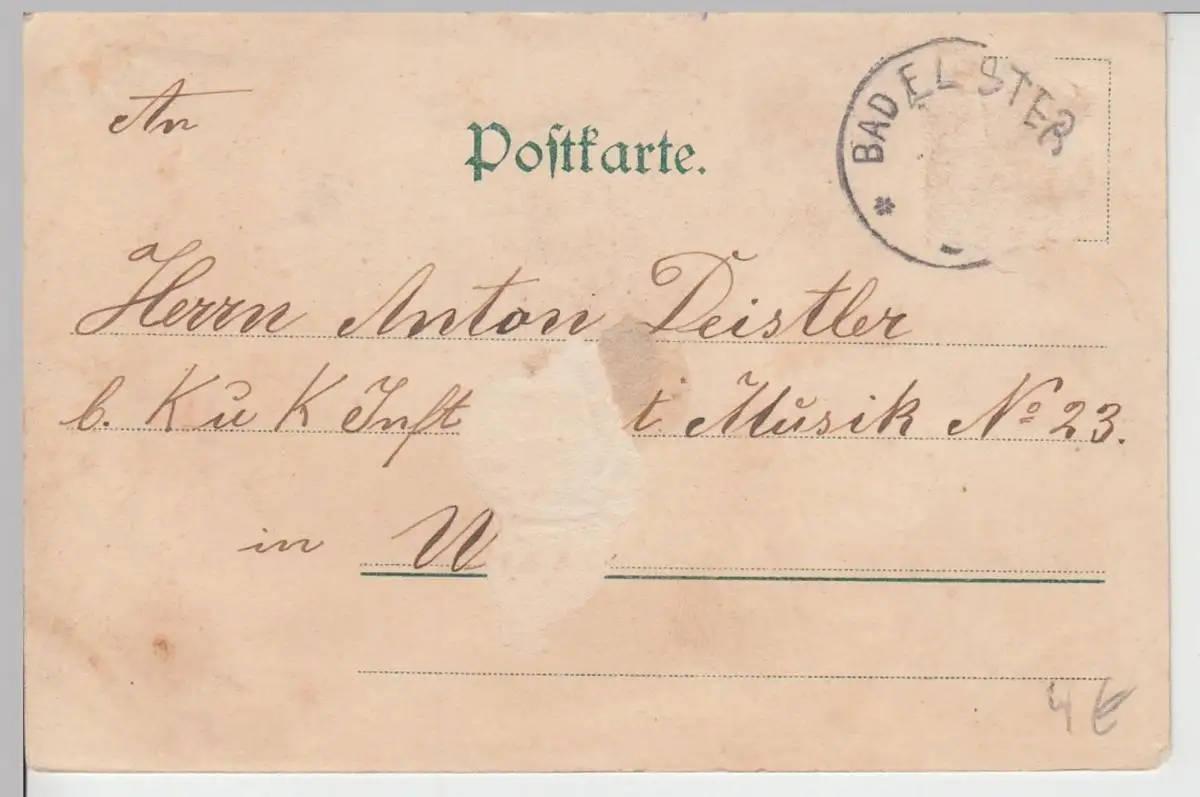 An
Postkarte.
BAD ELSTER
Herrn Anton Deistler
b. K u K Inft t Musik No 23.
in W
4 €